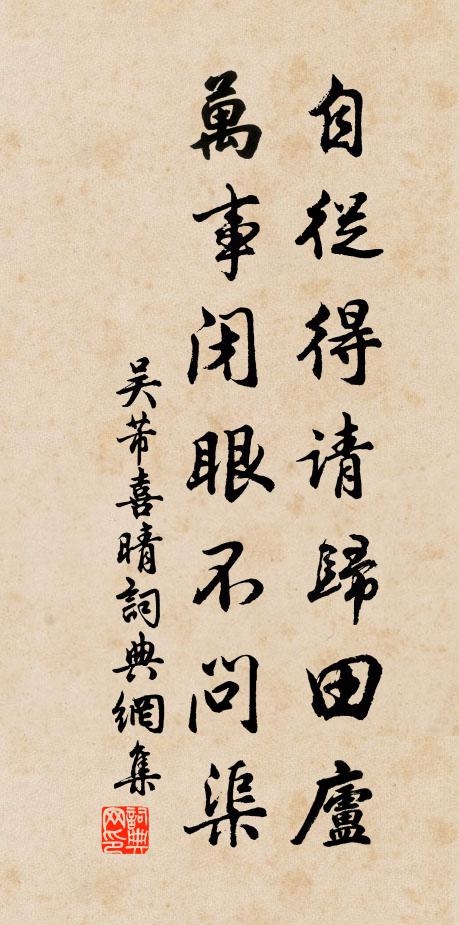 自從得请歸田廬
萬事闭眼不问渠
吴芾喜晴詞典網集
詞典网印